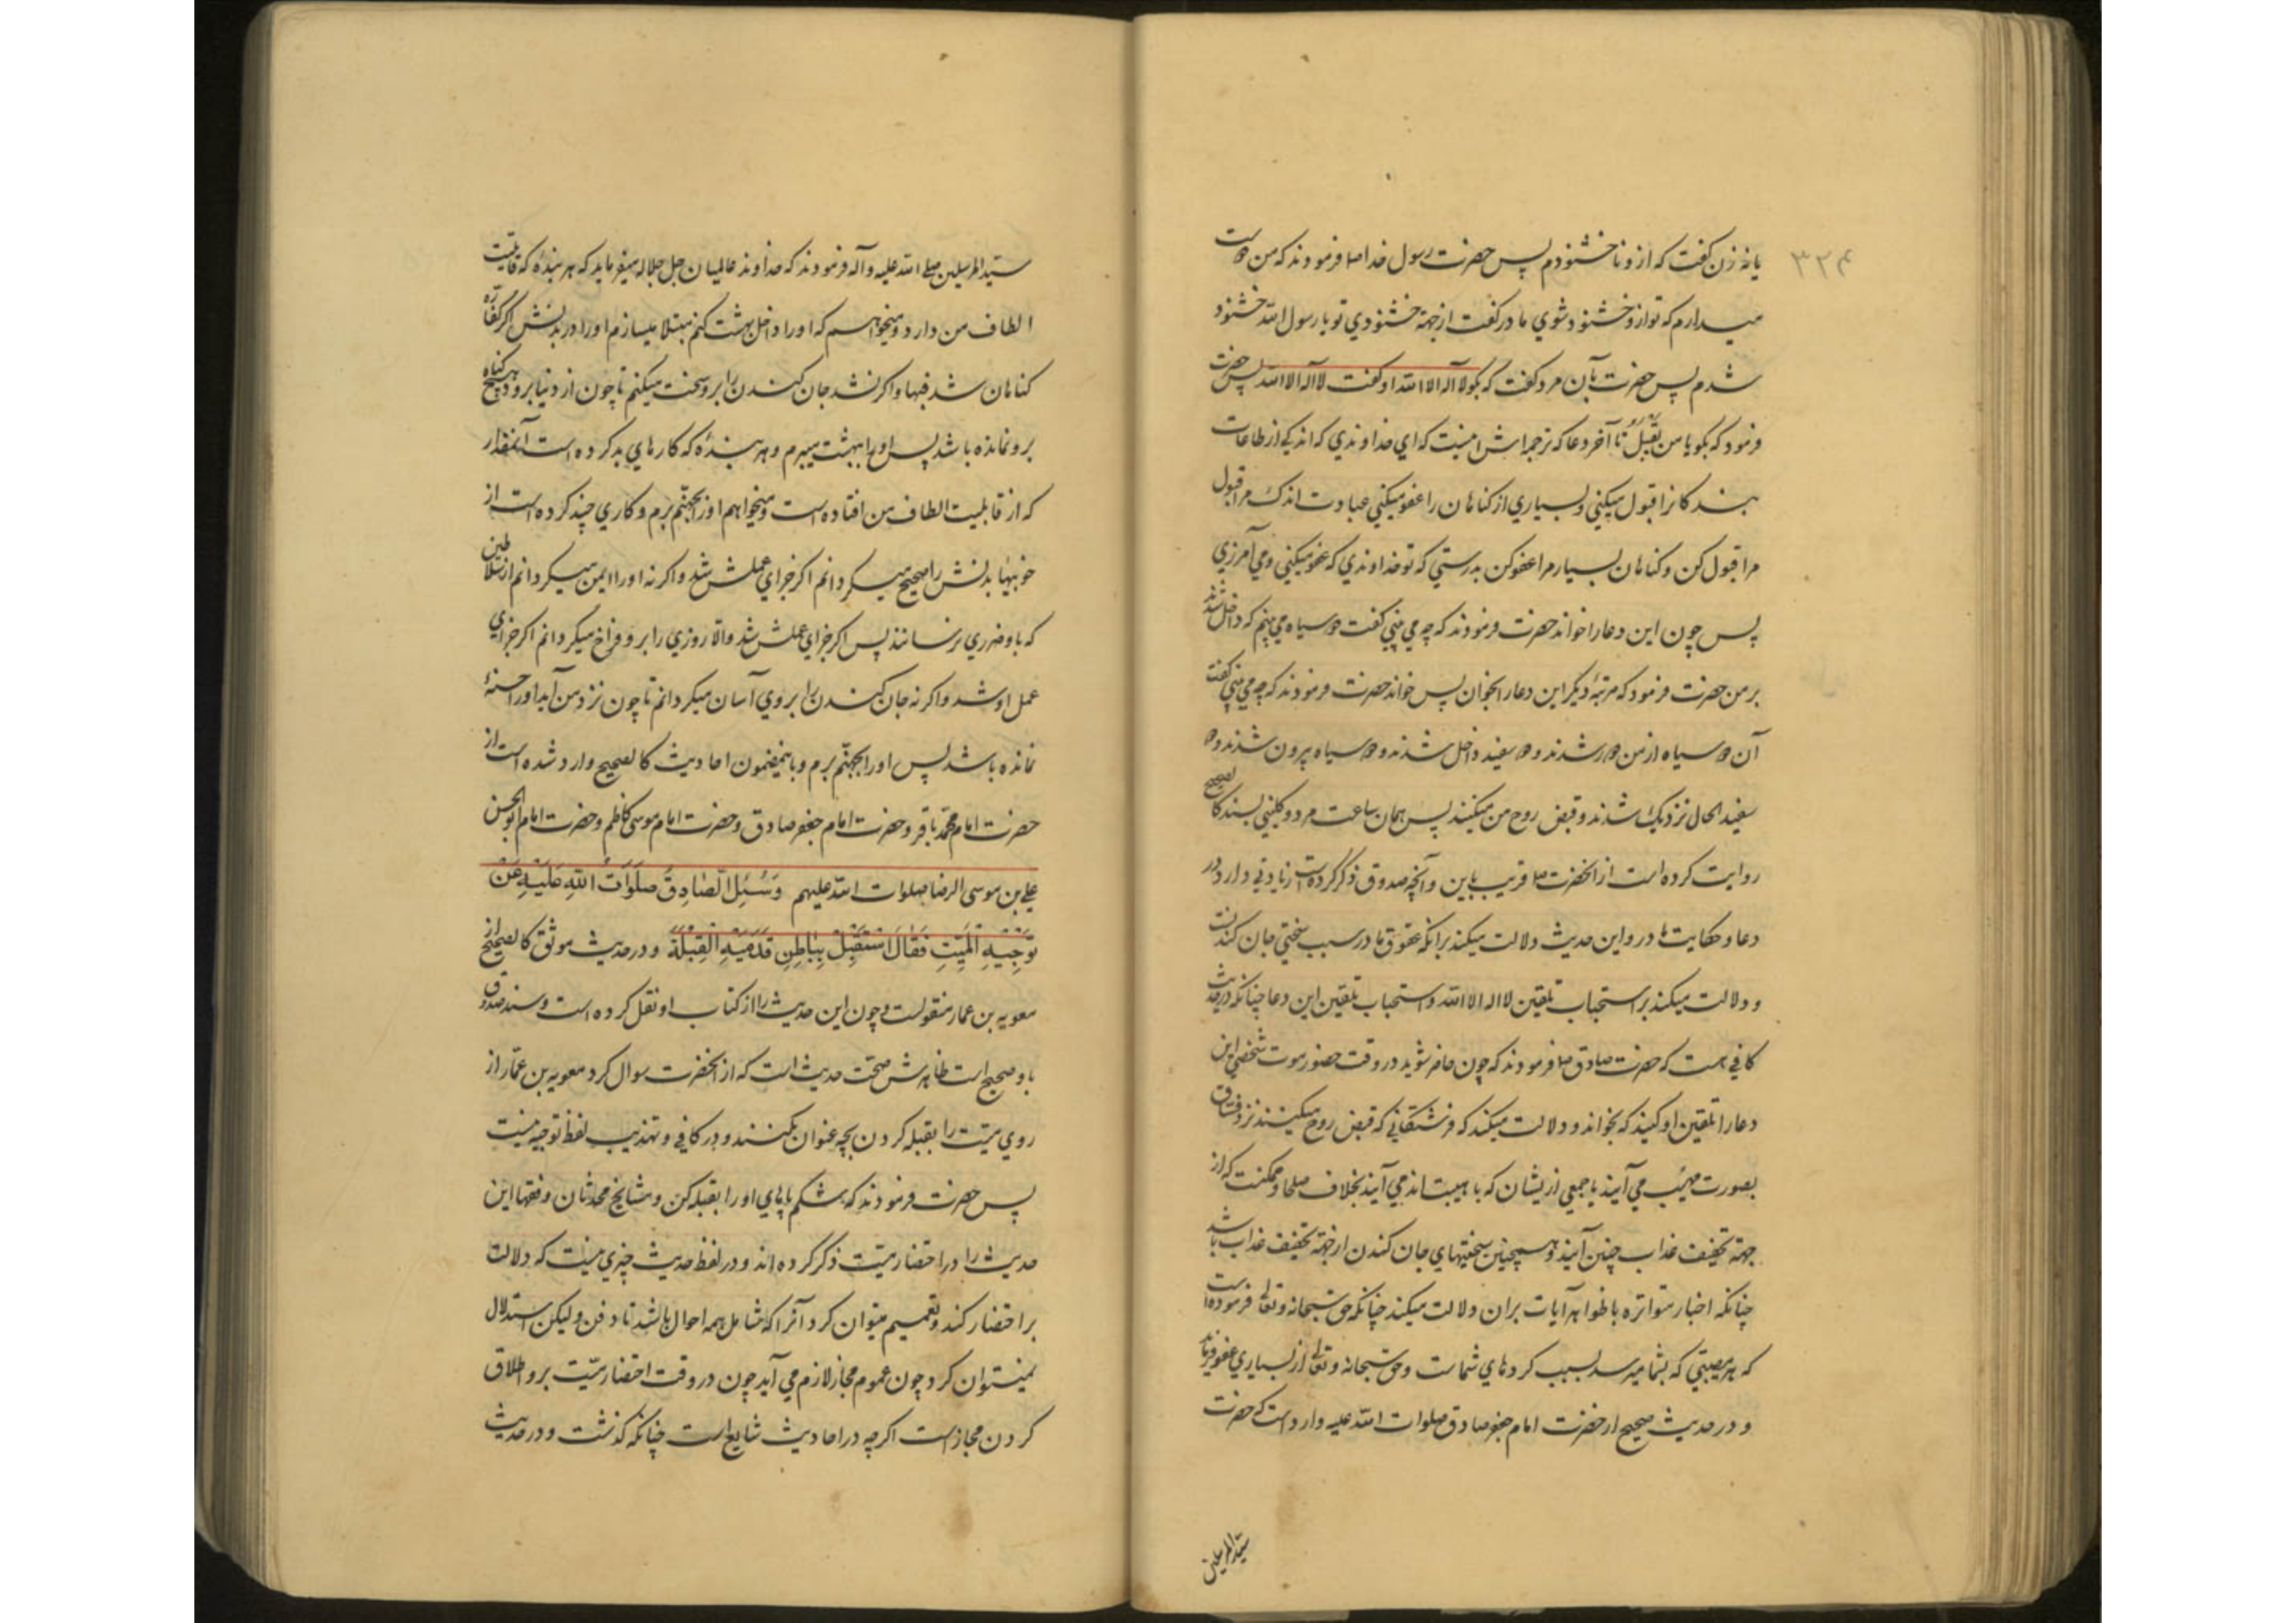 ۳۲۴
یا نه زن گفت که ازو ناخشنودم پس حضرت رسول خدا صلعم فرمودند که من دوست
میدارم که تو ازو خشنود شوی مادر گفت از جهة خشنودی تو یا رسول الله خشنود
شدم پس حضرت بآن مرد گفت که بگو لا آله الا الله او گفت لا اله الا الله پس حضرت
فرمود که بگو یا من یقبل تا آخر دعا که ترجمه‌اش اینست که ای خداوندی که اندکی از طاعات
بندگانرا قبول میکنی و بسیاری از کناهان را عفو میکنی عبادت اندک مرا قبول
مرا قبول کن و کناهان بسیار مرا عفو کن بدرستی که تو خداوندی که عفو میکنی و می آمرزی
پس چون این دعا را خواند حضرت فرمودند که چه می بینی گفت دو سیاه می بینم که داخل شدند
بر من حضرت فرمود که مرتبهٔ دیگر این دعا را بخوان پس خواند حضرت فرمودند که چه می بینی گفت
آن دو سیاه از من دور شدند و دو سفید داخل شدند و دو سیاه بیرون شدند و دو
سفید الحال نزدیک شدند و قبض روح من میکنند پس همان ساعت مرد و کلینی بسند کالصحیح
روایت کرده است از انحضرت قریب باین و آنچه صدوق ذکر کرده است زیادتی دارد در
دعا و حکایت مادر و این حدیث دلالت میکند برانکه عقوق مادر سبب سختی جان کندنست
و دلالت میکند بر استحباب تلقین لا اله الا الله و استحباب تلقین این دعا چنانکه در حدیث
کافی هست که حضرت صادق فرمودند که چون حاضر شوید در وقت حضور موت شخصی این
دعا را تلقین او کنید که بخواند و دلالت میکند که فرشتگانی که قبض روح میکنند نزد فساق
بصورت مهیب می آیند یا جمعی ازیشان که با هیبت اند می آیند بخلاف صلحا و ممکنست که از
جهة تخفیف عذاب چنین آیند و همچنین سختیهای جان کندن از جهة تخفیف عذاب باشد
چنانکه اخبار متواتره با ظواهر آیات بران دلالت میکند چنانکه حق سبحانه و تعالی فرموده است
که هر مصیبتی که بشما میرسد بسبب کردهای شماست و حق سبحانه و تعالی از بسیاری عفو میفرماید
و در حدیث صحیح از حضرت امام جعفر صادق صلوات الله علیه وارد است که حضرت
سید المرسلین
سید المرسلین صلی الله علیه و آله فرمودند که خداوند عالمیان جل جلاله میفرماید که هر بندهٔ که قابلیت
الطاف من دارد و میخواهم که او را داخل بهشت کنم مبتلا میسازم او را در بدنش اگر کفارهٔ
کناهان شد فبها و اگر نشد جان کندن را برو سخت میکنم تا چون از دنیا برود هیچ کناه
برو نمانده باشد پس او را ببهشت میبرم و هر بندهٔ که کارهای بد کرده است آنمقدار
که از قابلیت الطاف من افتاده است و میخواهم او را بجهنم برم و کاری چند کرده است از
خوبیها بدنش را صحیح میگردانم اگر جزای عملش شد و اگر نه او را ایمن میگردانم از سلاطین
که باو ضرری نرسانند پس اگر جزای عملش شد و الا روزی را برو فراخ میگردانم اگر جزای
عمل او شد و اگر نه جان کندن را بروی آسان میگردانم تا چون نزد من آید او را حسنهٔ
نمانده باشد پس او را بجهنم برم و باینمضمون احادیث کالصحیح وارد شده است از
حضرت امام محمد باقر و حضرت امام جعفر صادق و حضرت امام موسی کاظم و حضرت امام ابو الحسن
علی بن موسی الرضا صلوات الله علیهم وَسُئِلَ الصّادِقُ صَلَوَاتُ اللهِ عَلَیْهِ عَنْ
تَوْجِیْهِ الْمَیِّتِ فَقَالَ اسْتَقْبِلْ بِبَاطِنِ قَدَمَیْهِ الْقِبْلَةَ و در حدیث موثق کالصحیح از
معویه بن عمار منقولست و چون این حدیث را از کتاب او نقل کرده است و سند صدوق
باو صحیح است ظاهرش صحت حدیث است که از انحضرت سوال کرد معویه بن عمّار از
روی میّت را بقبله کردن بچه عنوان بکنند و در کافی و تهذیب لفظ توجیه نیست
پس حضرت فرمودند که شکم پاهای او را بقبله کن و مشایخ محدثان و فقها این
حدیث را در احتضار میّت ذکر کرده اند و در لفظ حدیث چیزی نیست که دلالت
بر احتضار کند و تعمیم میتوان کرد آنرا که شامل همه احوال باشد تا دفن و لیکن استدلال
نمیتوان کرد چون عموم مجاز لازم می آید چون در وقت احتضار میّت برو اطلاق
کردن مجاز است اگرچه در احادیث شایع است چنانکه گذشت و در حدیث